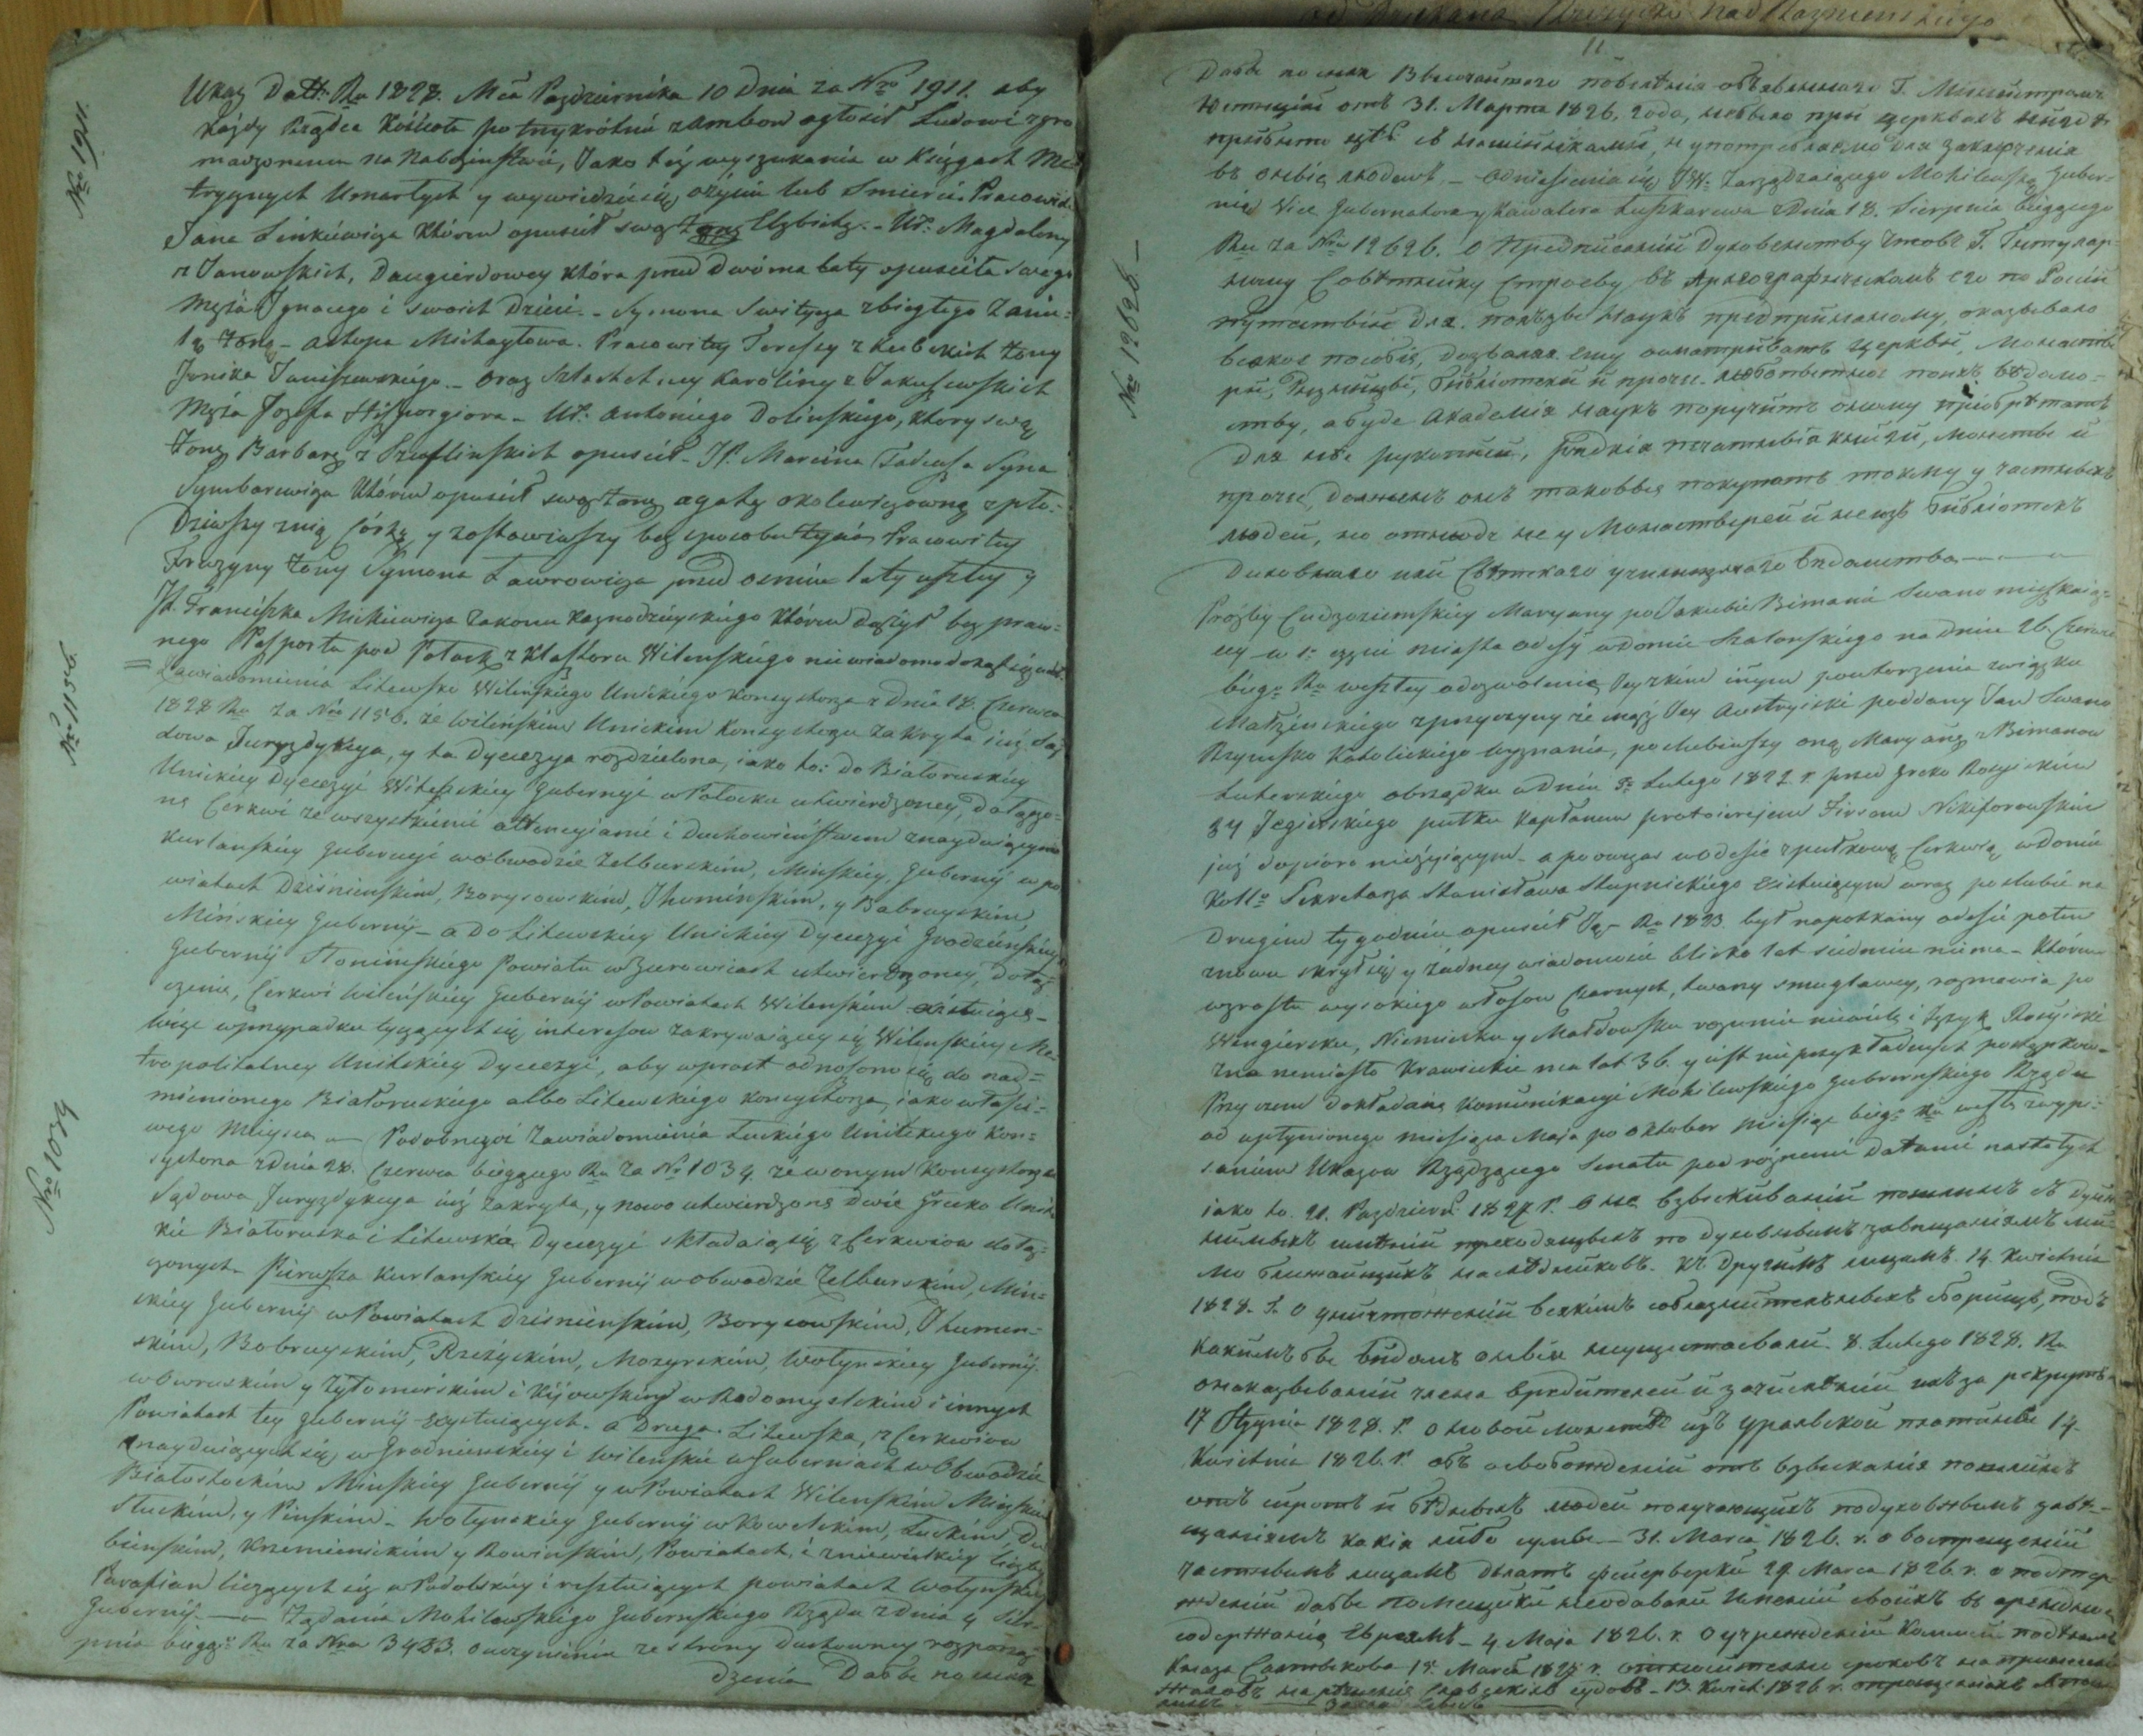 Nro 1911.
Ukaz Datt: Ru 1828. Mca Pazdziernika 10 Dnia za Nro 1911. aby
każdy Rządca Kościoła po trzykrótnie z ambon ogłosił Ludowi zgro
madzonemu na Nabożenstwie, Jako też wyszukania w Księgach Me
trycznych Umarłych y wywiedzie się o życiu lub Smierci. Pracowit.
Jana Sinkiewicza który opuścił swą żonę Elzbietę. - Ur: Magdaleny
z Janowskich, Daugierdowey która przed dwóma laty opusciła swego
Męża Ignacego i swoich Dzieci. - Symona Switycza zbiegłego zanie:
żoną - Michayłowa. Pracowitey Teressy z żony
Jenika Janiszewskiego - oraz Szlachetney Karoliny z Jakuszewskich
Męża Jozefa - Ur: Antoniego Dolinskiego, ktory swą
żonę Barbarę z opuścił - JP. Marcina Tadeusza Syna
Symborewicza który opuścił swą żonę Agatę okolewiczowną spło:
dziwszy z nią Córkę y zostawiwszy bez sposobu życia Pracowitey
Fruzyny żony Symona Ławrowicza przed osmiu laty uszłey y
JX. Franciszka Mickiewicza Zakonu Kaznodzieyskiego który bez praw:
nego Pasportu pod Połock z Klasztoru Wilenskiego niewiadomo dokąd się udał
Nro 1156.
Zawiadomienia Litewsko Wilenskiego Unickiego Konsystorza z Dnia 18. Czerwca
1828 Ru za Nro 1156. że Wileńskim Unickim Konsystorzu zakryta już Są
dowa Juryzdykcya, y ta Dyecezya rozdzielona, iako to: do Białoruskiey
Unickiey Dyecezyi Witebskiey Gubernyi w Połocku utwierdzoney, dołączo
ne Cerkwi ze wszystkiemi attenencyiami i Duchowieństwem znayduiącymi
Kurlanskiey Gubernyi w obwodzie Zelburskim, Minskiey Gubernij w po
wiatach Dziśnienskim, Borysowskim, Jhumińskim, y Bobruyskim
Mińskiey Gubernij - a do Litewskiey Unickiey Dyecezyi Grodzieńskiey
Gubernij Słonimskiego Powiatu w Żurowicach utwierdzoney, dołą=
czenie, Cerkwi Wileńskiey Gubernij w Powiatach Wilenskim existuiące -
więc w przypadku tyczących się interesow zakrywaiącey się Wilenskiey Me
tropolitalney Unitskiey Dyecezyi, aby wprost odnoszono się do nad=
mienionego Białoruskiego albo Litewskiego Konsystorza, iako właści=
wego Mieysca
Nro 1039
Podobnegoż Zawiadomienia Łuckiego Unitskiego Kon=
systorza z Dnia 28. Czerwca bieżącego Ru za Nr 1039. że w onym Konsystorzu
Sądowa Juryzdykcya już zakryta, y nowo utwierdzone dwie Greko Unit
kie Białoruska i Litewska Dyecezyi składaią się z Cerkwiow dołą=
czonych - Pierwsza Kurlanskiey Gubernij w obwodzie Zelburskim, Min=
skiey Gubernij w Powiatach Dzisnieńskim, Borysowskim, Jhumen=
skim, Bobruyskim, Rzeżyckim, Mozyrskim, Wołynskiey Gubernij
w Owruckim y Żytomirskim i Kijowskiey w Radomyslskim i innych
Powiatach tey Gubernij existuiących. a Druga. Litewska, z Cerkwiow
znayduiących się w Grodnieńskiey i Wilenskie w Guberniach w Obwodzie
Białostockim Minskiey Gubernij y w Powiatach Wilenskim Minskim
Słuckim, y Pinskim - Wołynskiey Gubernij w Kowelskim, Łuckim Du
bieńskim, Krzemienickim y Rowieńskim, Powiatach, i zniewielkiey liczby
Parafian liczących się w Podolskiey i existuiących powiatach Wołynskiey
Gubernij. Żądania Mohilewskiego Gubernskiego Rządu z Dnia 4 Sier
pnia bieżącº Ru za Nrem 3483. o uczynieniu ze strony duchowney rozporzą
dzenia Дабы по силѣ
11
Nro 12626. -
Дабы по силѣ Высочайшаго повелѣнія объявленнаго Г. Министромъ
Юстиціи отъ 31. Марта 1826. года, небыло при церквахъ нигдѣ
и употребляемо для заключенія
въ оныя людей, - odniesienia się JW. Zarządzaiącego Mohilewską Guber=
nią Vice Gubernatora y Kawalera Łuszkarewa z Dnia 18. Sierpnia bieżącego
Ru za Nro 12626. О Предписаніи Духовенству чтобъ Г. Титуляр=
ному Совѣтнику Строеву въ Археографическомъ его по Россіи
путешествіи для пользы Наукъ предпринимаемому, оказывало
всякое пособіе, дозволяя ему осматривать Церквы, Монасты
ри, Ризницы, Библіотеки и прочіе любопытное
ству, а буде Академія наукъ поручитъ оному пріобрѣтать
для нее рукописи, рѣдкія печатныя книги, монеты и
прочіе, долженъ онъ таковыя покупать токмо у частныхъ
людей, но отнюдь не у Монастырей и неизъ Библіотекъ
Духовнаго или Свѣтскаго училищнаго вѣдомства
Prośby Cudzoziemskiey Maryany po Jakubie Bimanie Swano mięszkaią=
cey w 1. części miasta Odessy w domie Szatonskiego na dniu 26. Czerwca
bieg: Ru weszłey o dozwolenie Jey z kim innym powtorzenia związku
Małżeńskiego z przyczyny że mąż Jey Austryiski poddany Jan Swano
Rzymsko Katolickiego wyznania, poslubiwszy oną Maryannę z Bimanow
Luterskiego obrządku w dniu 5: Lutego 1822 r. przed Greko Rosyiskim
34 Jegierskiego pułku Kapłanem protoierejem Nikiforowskim
już dopiero nieżyiącym - a poowczas w Odesie z pułkową Cerkwią w domie
Kollº Sekretarza Stanisława Stupnickiego existuiącym wraz po slubie na
Drugim tygodniu opuścił Ją - Ru 1823. był napotkany w Odesie potem
znowu skrył się y żadney wiadomości blisko lat siedmiu niema - który
wzrostu wysokiego włosow Czarnych, twarzy smugławey, rozmawia po
Wengiersku, Niemiecku y Mołdawsku rozumie nieiaki i Język Rosyiski
zna rzemiosło Krawieckie ma lat 36. y iest nieprzykładnych postępkow -
Przy czem dokładaią Komunikacyi Mohilewskiego Gubernskiego Rządu
od upłynionego miesiąca Maja po oktober miesiąc bieg: Ru weszłe z wyp=
isaniem Ukazow Rządzącego Senatu pod roznemi datami nastałych
iako to. 21. Pazdziern. 1827 r. О не взыскиваніи пошлинъ съ
имѣній переходящихъ по духовнымъ завещаніямъ ми
мо ближайшихъ наслѣдниковъ. къ другимъ лицамъ. 14. Kwietnia
1828. r. О уничтоженіи всякимъ соблазнительныхъ сборищъ, подъ
какимъ бы видомъ оныя несуществовали. 8. Lutego 1828. Ru
онаказываніи члена вредителей и зачисленіи ихъ за рекрутъ
17 Stycznia 1828. r. о новой монетѣ изъ Уральской платины 14.
Kwietnia 1826. r. объ освобожденіи отъ взысканія пошлинъ
отъ сиротъ и бѣдныхъ людей получающихъ подуховнымъ завѣ=
щаніямъ какія либо сумы - 31. Marca 1826. r. о воспрещеніи
частнымъ лицамъ дѣлать фейерверки 29. Marca 1826 r. о подтвер
жденіи дабы помещики неодавали имѣній своихъ въ арендное
содержаніе Евреямъ - 4 Maja 1826. r. О учрежденіи Комисіи
Князя Салтыкова 15. Marca 1827 r. относительно сроковъ на принесеніе
жалобъ на рѣшенія судовъ - 13. Kwiet: 1826 r.